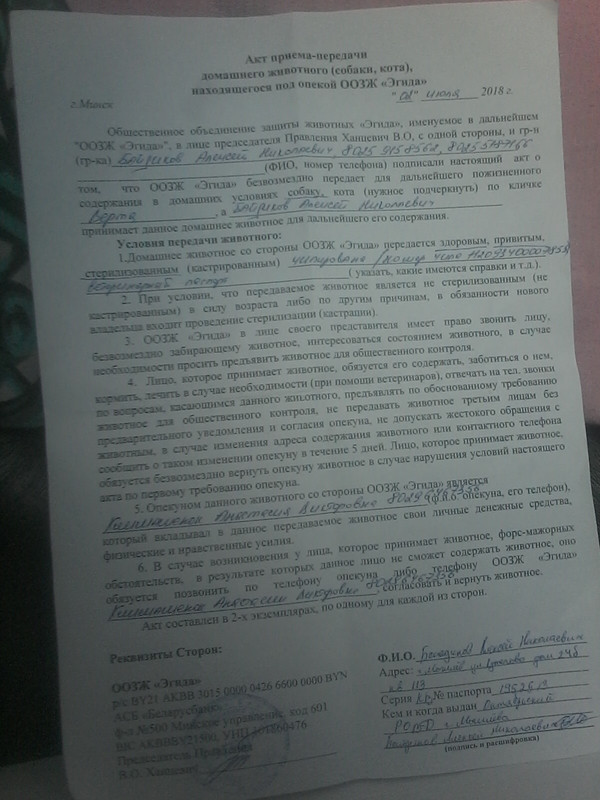 Акт приема-передачи
домашнего животного (собаки, кота),
находящегося под опекой ООЗЖ «Эгида»
г.Минск " 02 " июля 2018 г.
Общественное объединение защиты животных «Эгида», именуемое в дальнейшем
"ООЗЖ «Эгида»", в лице председателя Правления Ханцевич В.О, с одной стороны, и гр-н
(гр-ка) Алексей Николаевич,
(ФИО, номер телефона) подписали настоящий акт о
том, что ООЗЖ «Эгида» безвозмездно передает для дальнейшего пожизненного
содержания в домашних условиях собаку, кота (нужное подчеркнуть) по кличке
, а Алексей Николаевич
принимает данное домашнее животное для дальнейшего его содержания.
Условия передачи животного:
1.Домашнее животное со стороны ООЗЖ «Эгида» передается здоровым, привитым,
стерилизованным (кастрированным) чипирована /номер чипа
( указать, какие имеются справки и т.д.).
2. При условии, что передаваемое животное является не стерилизованным (не
кастрированным) в силу возраста либо по другим причинам, в обязанности нового
владельца входит проведение стерилизации (кастрации).
3. ООЗЖ «Эгида» в лице своего представителя имеет право звонить лицу,
безвозмездно забирающему животное, интересоваться состоянием животного, в случае
необходимости просить предъявить животное для общественного контроля.
4. Лицо, которое принимает животное, обязуется его содержать, заботиться о нем,
кормить, лечить в случае необходимости (при помощи ветеринаров), отвечать на тел. звонки
по вопросам, касающимся данного животного, предъявлять по обоснованному требованию
животное для общественного контроля, не передавать животное третьим лицам без
предварительного уведомления и согласия опекуна, не допускать жестокого обращения с
животным, в случае изменения адреса содержания животного или контактного телефона
сообщить о таком изменении опекуну в течение 5 дней. Лицо, которое принимает животное,
обязуется безвозмездно вернуть опекуну животное в случае нарушения условий настоящего
акта по первому требованию опекуна.
5. Опекуном данного животного со стороны ООЗЖ «Эгида» является
Анастасия Викторовна (ф.и.о. опекуна, его телефон),
который вкладывал в данное передаваемое животное свои личные денежные средства,
физические и нравственные усилия.
6. В случае возникновения у лица, которое принимает животное, форс-мажорных
обстоятельств, в результате которых данное лицо не сможет содержать животное, оно
обязуется позвонить по телефону опекуна либо телефону ООЗЖ «Эгида»
, согласовать и вернуть животное.
Акт составлен в 2-х экземплярах, по одному для каждой из сторон.
Реквизиты Сторон:
ООЗЖ «Эгида»
р/с BY21 AKBB 3015 0000 0426 6600 0000 BYN
АСБ «Беларусбанк»
ф-л №500 Минское управление, код 601
BIC AKBBBY21500, УНП
Председатель Правления
В.О. Ханцевич
Ф.И.О. Алексей Николаевич
Адрес: дом 24б
кв 113
Серия № паспорта
Кем и когда выдан Октябрьский
РОВД г.
Алексей Николаевич
(подпись и расшифровка)